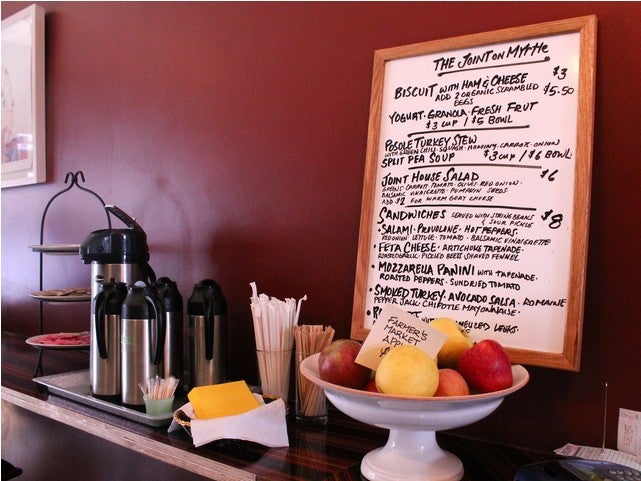 THE JOINT ON MYTHE
BISCUIT WITH HAM & CHEESE $3
ADD 2 ORGANIC SCRAMBLED EGGS $5.50
YOGURT · GRANOLA · FRESH FRUT
$3 CUP / $5 BOWL
POSOLE TURKEY STEW
WITH GREEN CHILI · SQUASH · HOMINY · CARROT · ONION
SPLIT PEA SOUP $3 CUP / $6 BOWL
JOINT HOUSE SALAD $6
GREENS · CARROT · TOMATO · OLIVES · RED ONION ·
BALSAMIC VINAIGRETTE · PUMPKIN SEEDS
ADD $2 FOR WARM GOAT CHEESE
SANDWICHES SERVED WITH STRING BEANS & SOUR PICKLE $8
· SALAMI · PROVOLONE · HOT PEPPERS ·
RED ONION · LETTUCE · TOMATO · BALSAMIC VINAIGRETTE
· FETA CHEESE · ARTICHOKE TAPENADE ·
ROASTED GARLIC · PICKLED BEETS SHAVED FENNEL
· MOZZARELLA PANINI WITH TAPENADE ·
ROASTED PEPPERS · SUNDRIED TOMATO
· SMOKED TURKEY · AVOCADO SALSA · ROMAINE
PEPPER JACK · CHIPOTLE MAYO
LEEKS
FARMER'S
MARKET